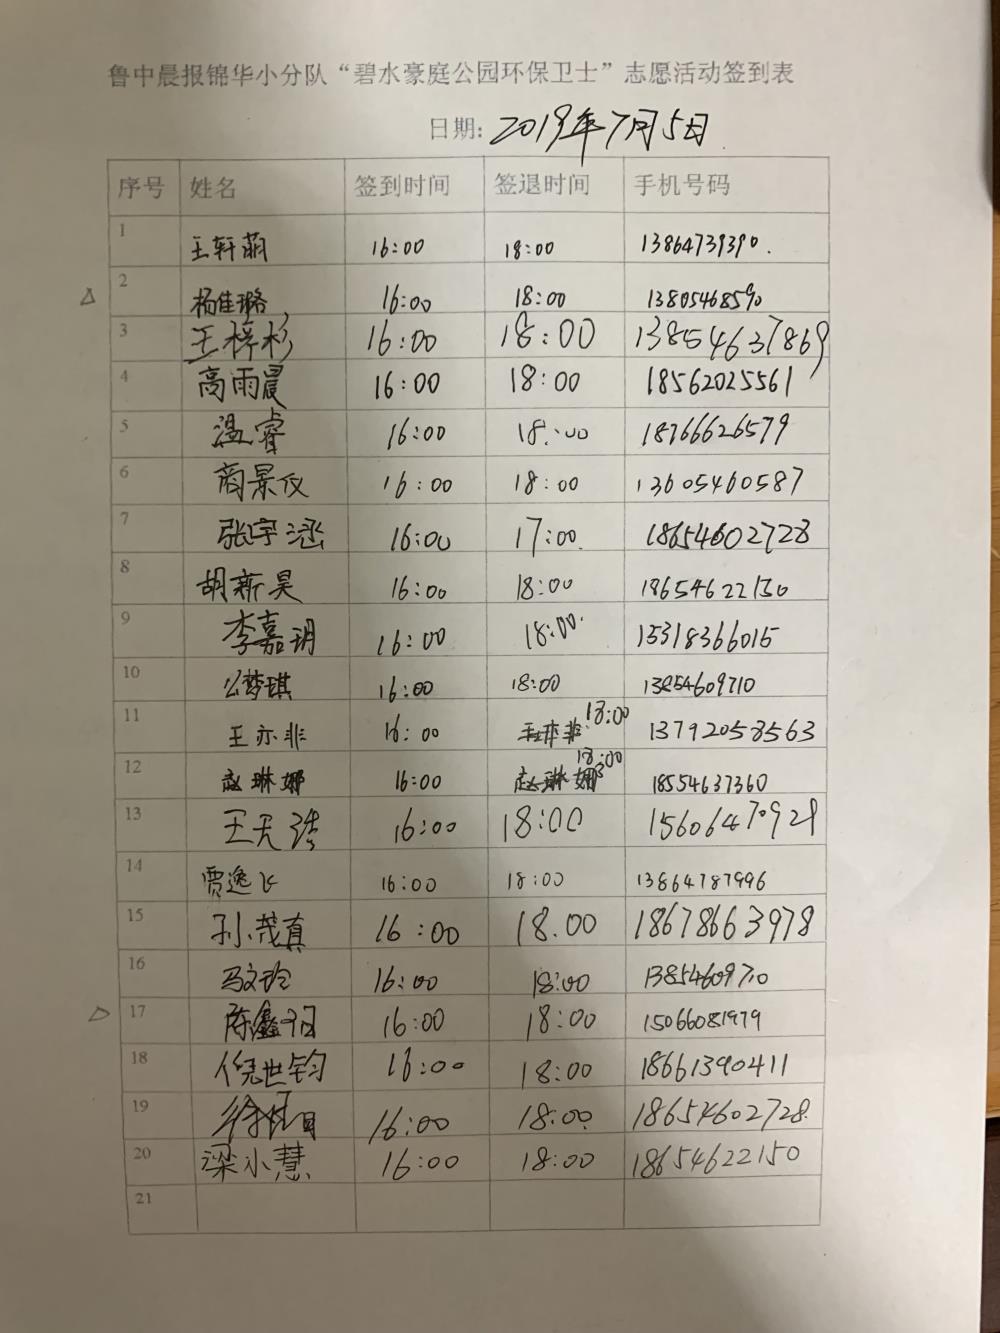 鲁中晨报锦华小分队“碧水豪庭公园环保卫士”志愿活动签到表
日期: 2019年7月5日
序号 姓名 签到时间 签退时间 手机号码
1 王轩萌 16:00 18:00 13864739390.
2 杨佳璐 16:00 18:00 13805468590
3 王梓杉 16:00 18:00 13854637869
4 高雨晨 16:00 18:00 18562025561
5 温睿 16:00 18:00 18766626579
6 商景仪 16:00 18:00 13605460587
7 张宇涵 16:00 17:00. 18654602728
8 胡新昊 16:00 18:00 18654622150
9 李嘉玥 16:00 18:00. 15318366015
10 公梦琪 16:00 18:00 13854609710
11 王亦非 16:00 18:00 13792058563
12 赵琳娜 16:00 18:00 18554637360
13 王天浩 16:00 18:00 15606470929
14 贾逸飞 16:00 18:00 13864787996
15 孙茂真 16:00 18.00 18678663978
16 马文玲 16:00 18:00 13854609710
17 陈鑫 16:00 18:00 15066081979
18 倪世钧 16:00 18:00 18661390411
19 徐 16:00 18:00. 18654602728.
20 梁小慧 16:00 18:00 18654622150
21